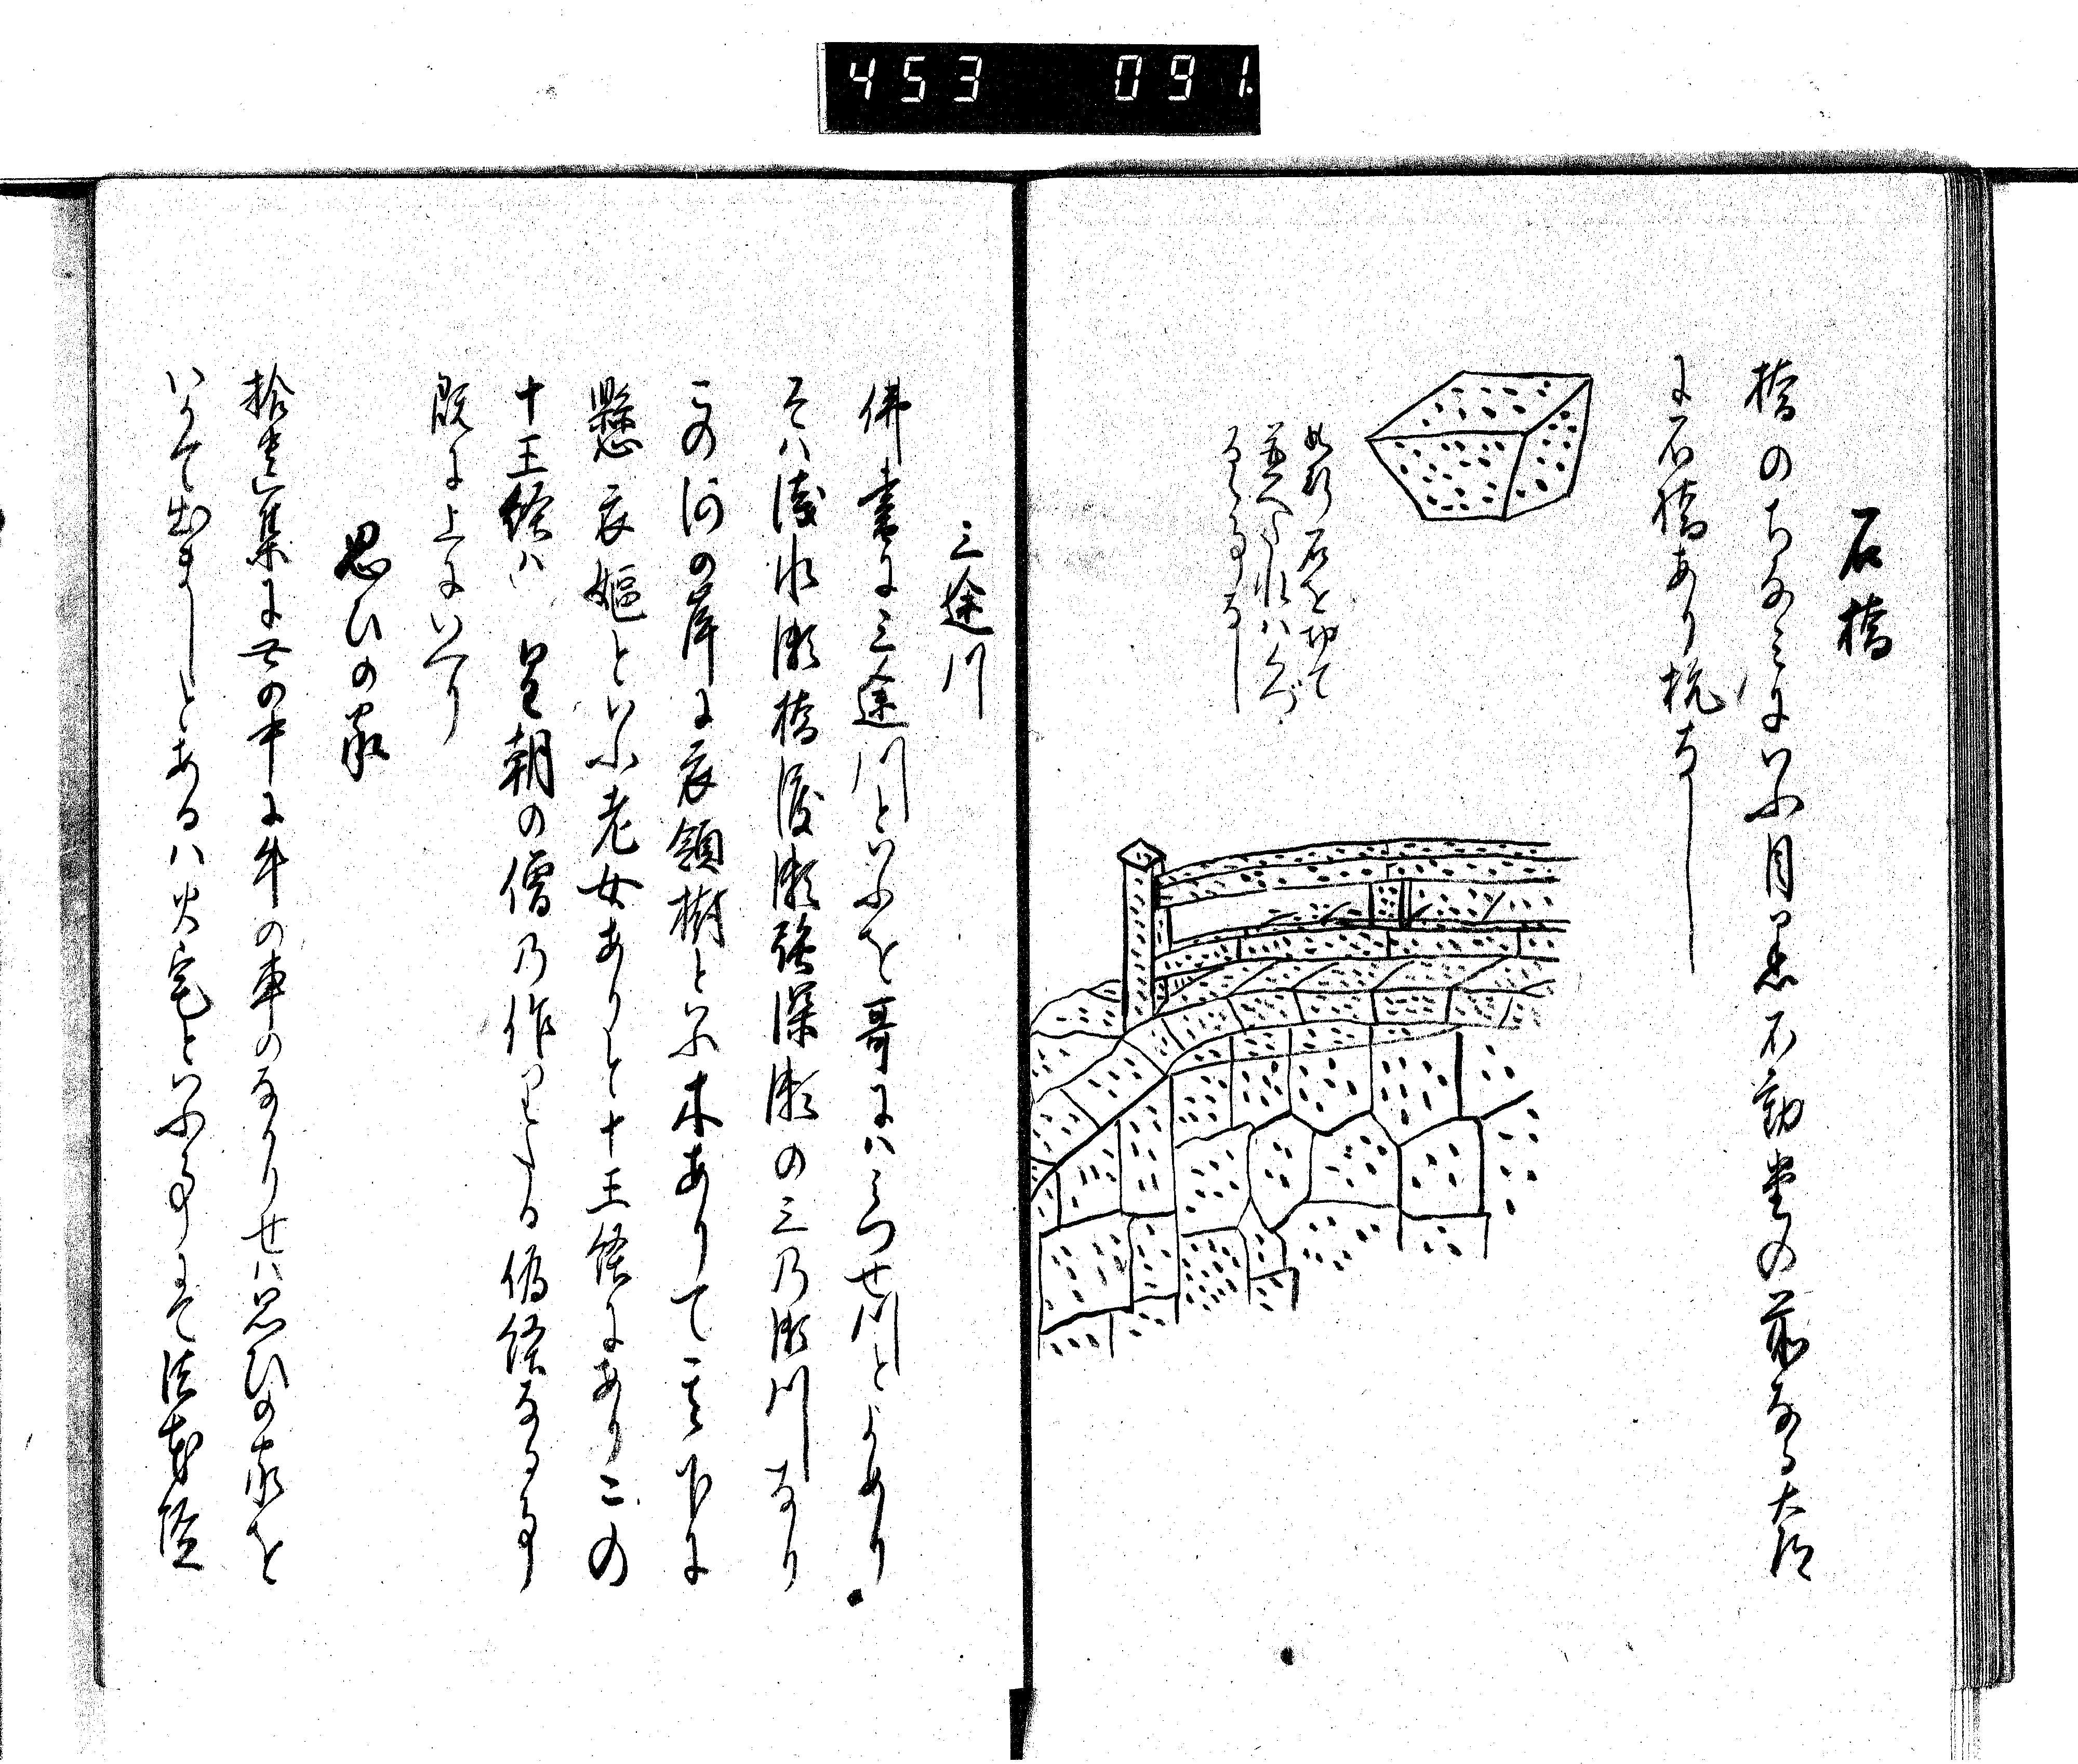 453 091.
石橋
橋のちなみにいふ目黒不動堂の前なる大路
に石橋あり杭なし
此形に石を切て
並へたれはくづ
るゝ事なし
三途川
佛書に三途川といふを哥にはみつせ川とよめり
そは浅水瀬橋渡瀬強深瀬の三乃瀬川なり
この河の岸に衣領樹といふ木ありて其下に
懸衣嫗といふ老女ありと十王経にありこの
十王経は 皇朝の僧乃作りたる偽経なる事
既に上にいへり
思ひの家
拾遺集に世の中に牛の車のなかりせは思ひの家を
いかて出ましとあるは火宅といふ事にて法華経